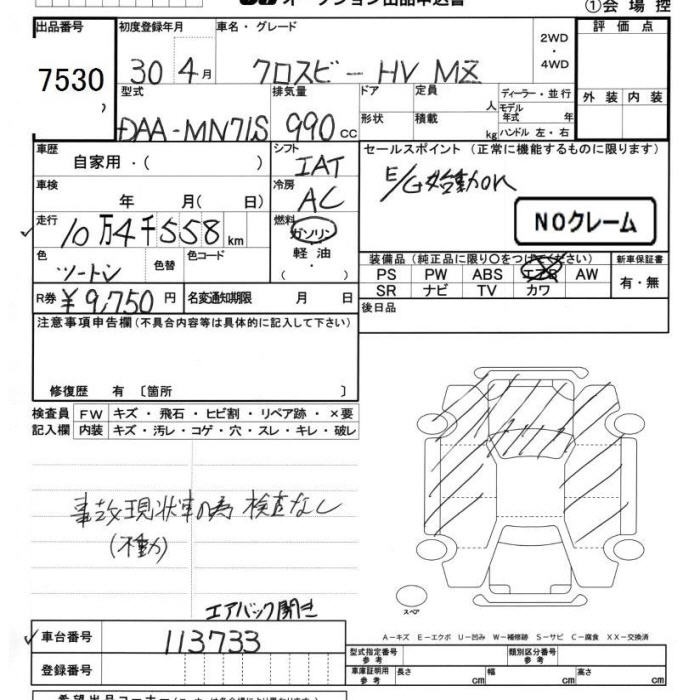 オークション出品申込書
①会場控
出品番号
7530
初度登録年月
30 4月
車名・グレード
クロスビー HV MZ
2WD・4WD
評価点
外装 内装
型式
DAA-MN71S
排気量
990 cc
ドア
形状
定員 人
積載 kg
ディーラー・並行
モデル年式 年
ハンドル 左・右
車歴
自家用・( )
シフト
IAT
セールスポイント(正常に機能するものに限ります)
E/G始動OK
NOクレーム
車検
年 月( 日)
冷房
AC
走行
10万4千558km
燃料
ガソリン
軽油
( ・ )
色
ツートン
色替
色コード
R券
¥9,750円
名変通知期限 月 日
装備品(純正品に限り○をつけてください)
PS PW ABS エアB AW
SR ナビ TV カワ
新車保証書
有・無
後日品
注意事項申告欄(不具合内容等は具体的に記入して下さい)
修復歴 有 〔箇所 〕
検査員記入欄
FW キズ・飛石・ヒビ割・リペア跡・×要
内装 キズ・汚レ・コゲ・穴・スレ・キレ・破レ
事故現状車の為 検査なし
(不動)
エアバック開き
スペア
車台番号
113733
登録番号
A-キズ E-エクボ U-凹み W-補修跡 S-サビ C-腐食 XX-交換済
型式指定番号 参考
類別区分番号 参考
車庫証明用 参考
長さ cm 幅 cm 高さ cm